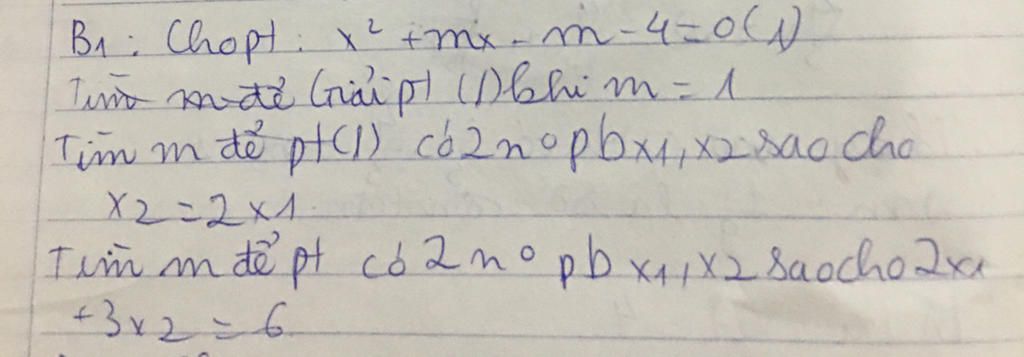 B1: Cho pt: x² + mx - m - 4 = 0 (1)
Tìm m để Giải pt (1) khi m = 1
Tìm m để pt (1) có 2 n° pb x1, x2 sao cho
x2 = 2x1.
Tìm m để pt có 2 n° pb x1, x2 sao cho 2x1
+3x2 = 6